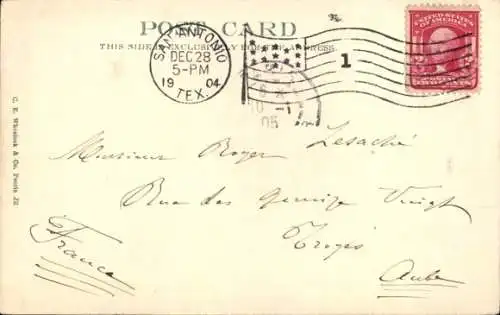 POST CARD
THIS SIDE IS EXCLUSIVELY FOR THE ADDRESS.
SAN ANTONIO
DEC 28
5-PM
1904
TEX.
1
UNITED STATES OF AMERICA
2 2
TWO CENTS
10 -1
05
C. E. Wheelock & Co. Peoria Ill
Monsieur Roger Lesaché
Rue des Quinze Vingt
Troyes
Aube
France